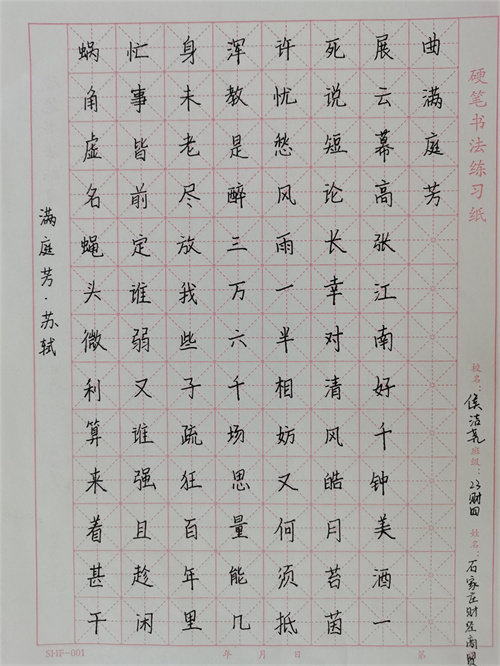 满庭芳·苏轼
蜗角虚名蝇头微利算来着甚干
忙事皆前定谁弱又谁强且趁闲
身未老尽放我些子疏狂百年里
浑教是醉三万六千场思量能几
许忧愁风雨一半相妨又何须抵
死说短论长幸对清风皓月苔茵
展云幕高张江南好千钟美酒一
曲满庭芳
硬笔书法练习纸
校名：侯洁 班级：23财 姓名：石家庄财经商贸
SHF-001 年 月 日 第